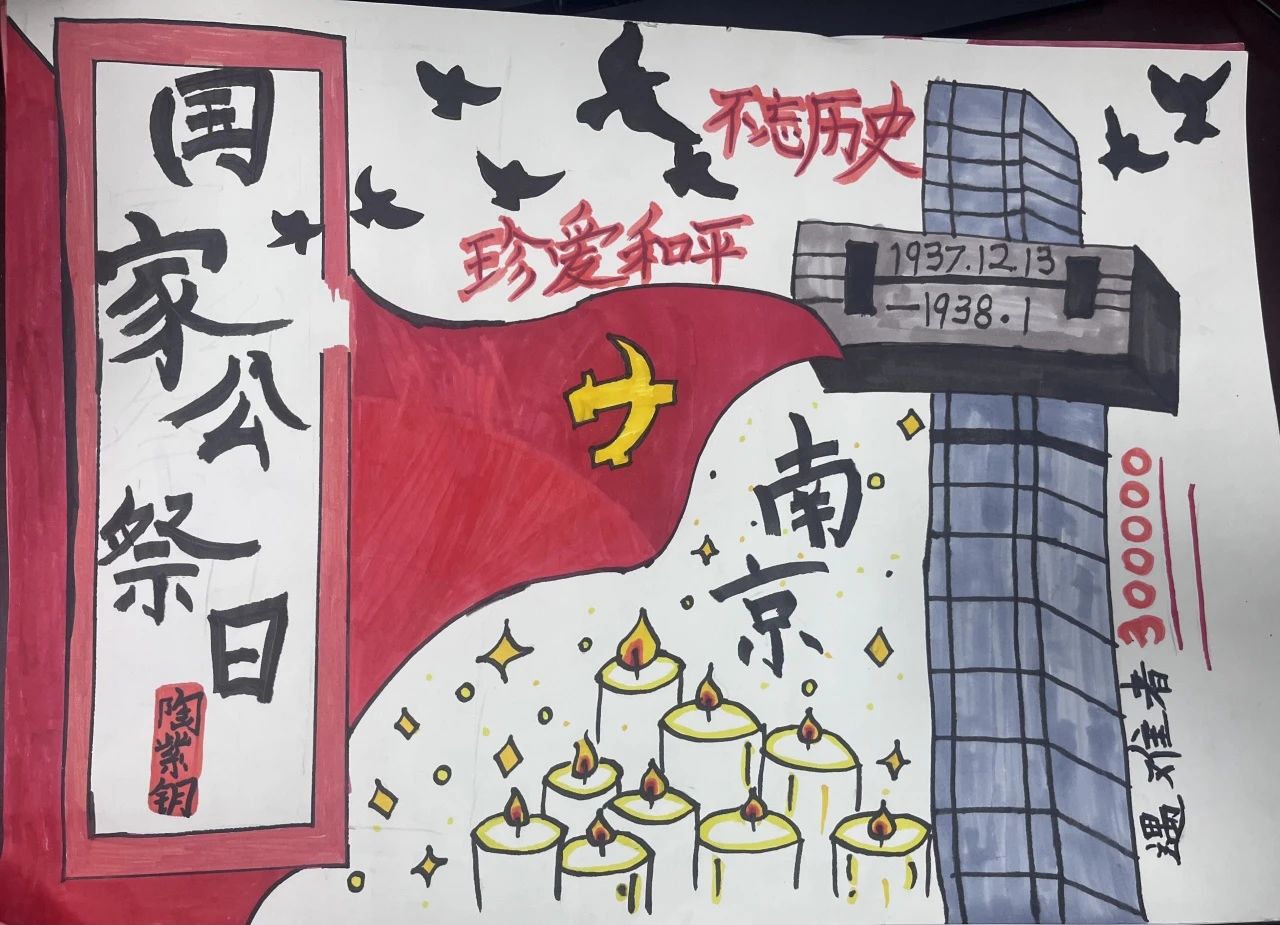 国家公祭日
陶紫钥
不忘历史
珍爱和平
1937.12.13
—1938.1
南京
遇难者300000